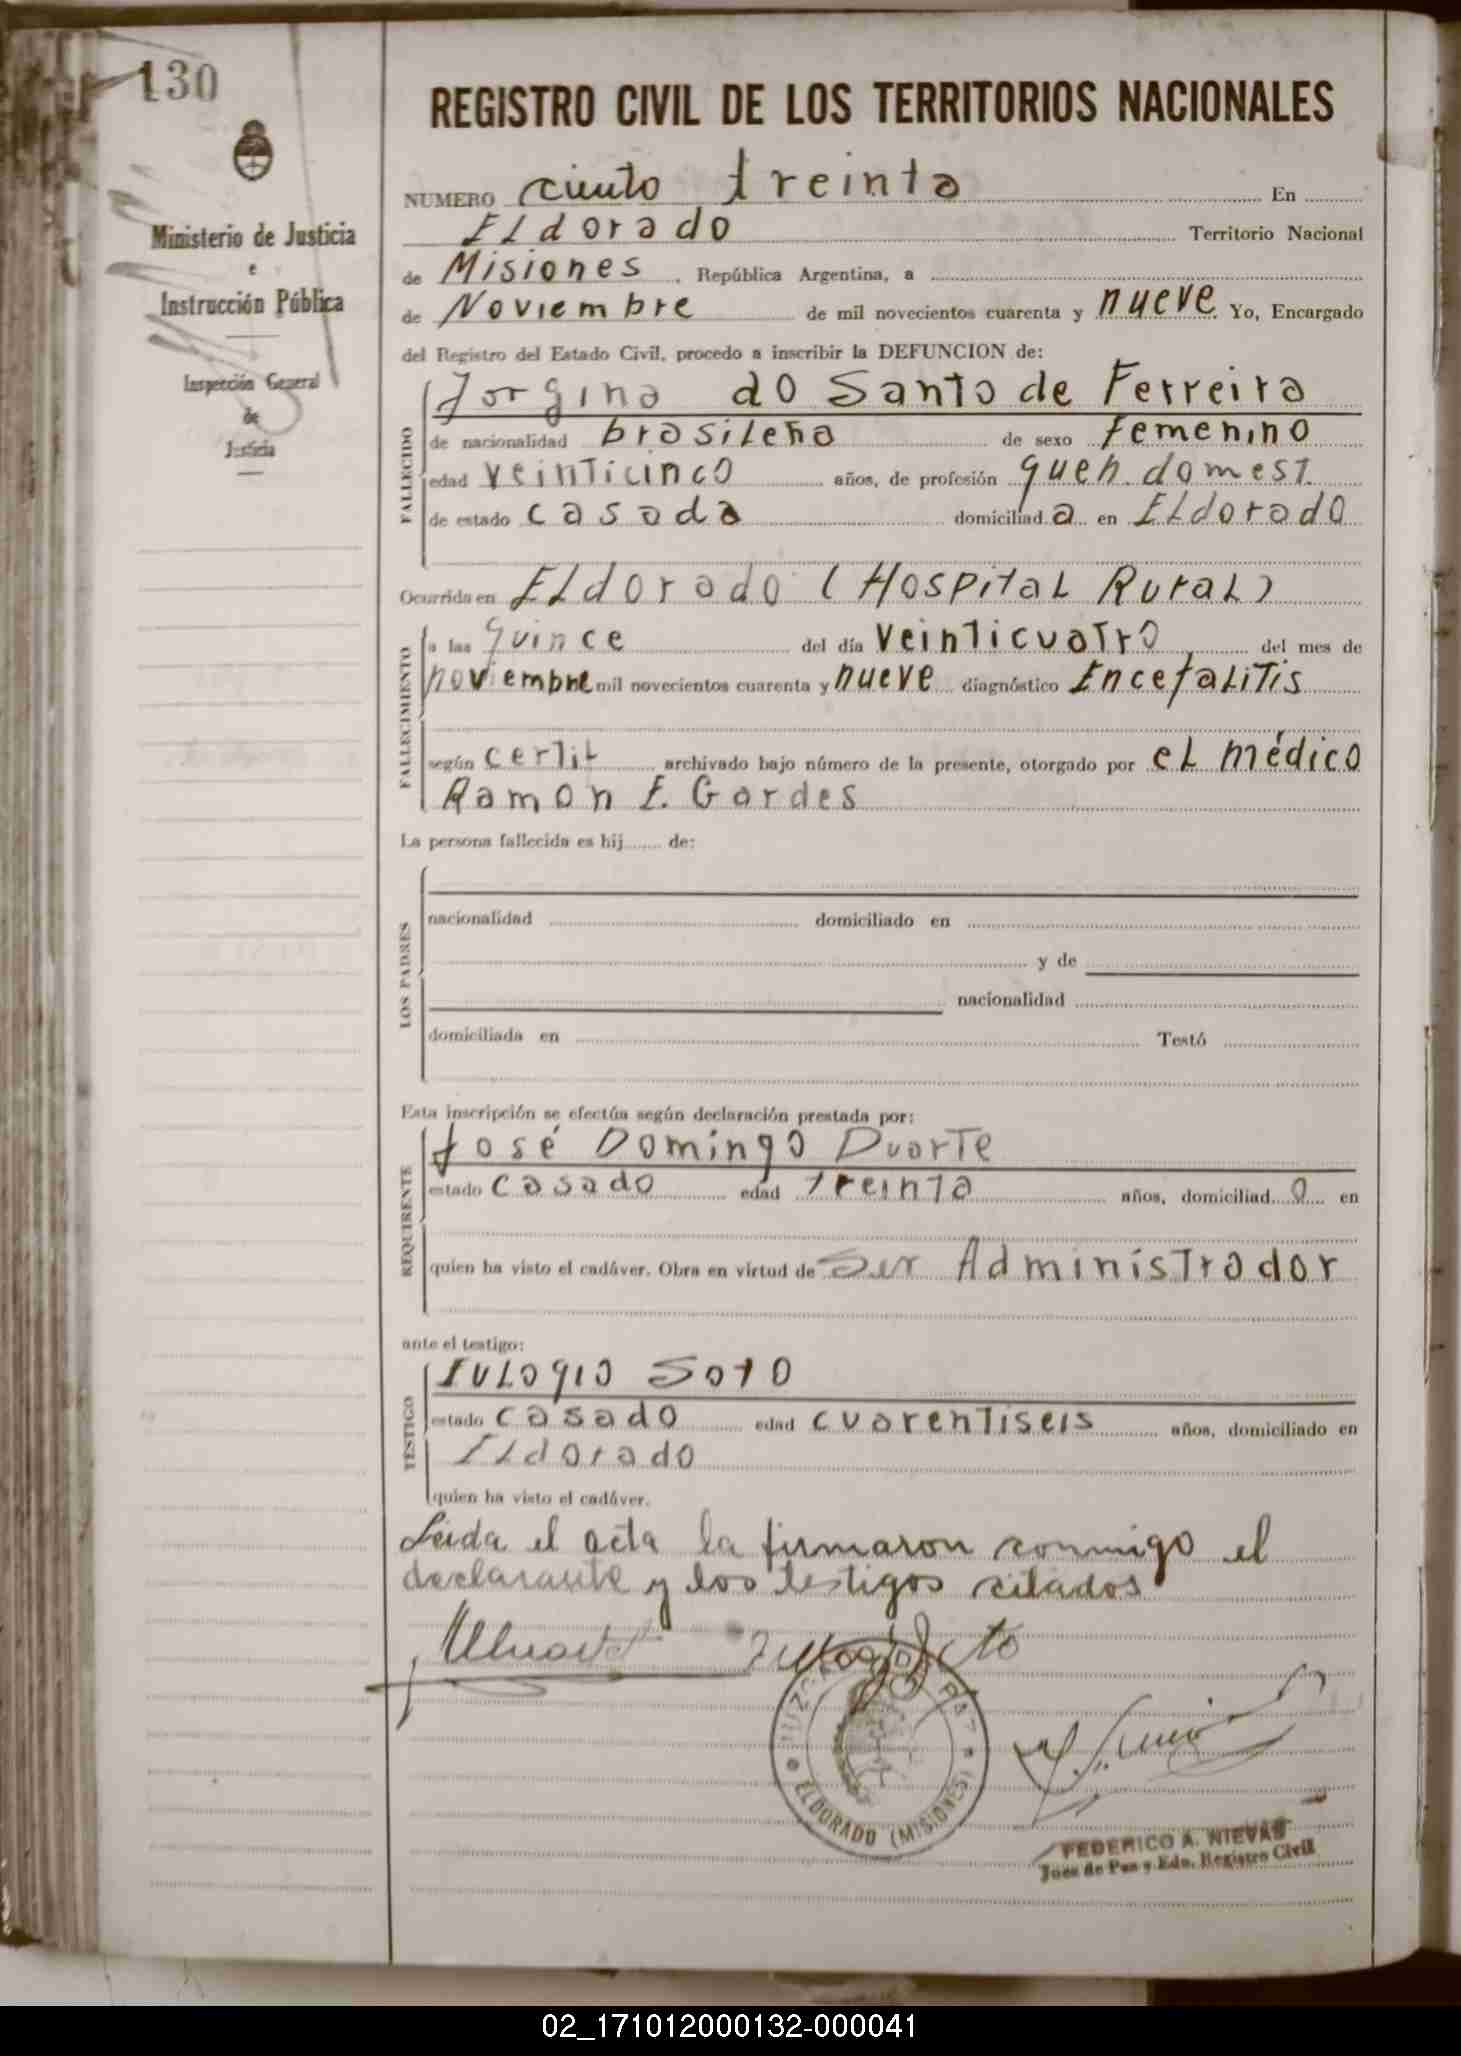 130
REGISTRO CIVIL DE LOS TERRITORIOS NACIONALES
Ministerio de Justicia
e
Instrucción Pública
Inspección General
de
Justicia
NUMERO ciento treinta En
Eldorado Territorio Nacional
de Misiones, República Argentina, a
de Noviembre de mil novecientos cuarenta y nueve Yo, Encargado
del Registro del Estado Civil, procedo a inscribir la DEFUNCION de:
FALLECIDO
Jorgina do Santo de Ferreira
de nacionalidad brasileña de sexo femenino
edad veinticinco años, de profesión queh. domest.
de estado casada domiciliada en Eldorado
Ocurrida en Eldorado (Hospital Rural)
FALLECIMIENTO
a las quince del día veinticuatro, del mes de
noviembre mil novecientos cuarenta y nueve diagnóstico Encefalitis
según certif archivado bajo número de la presente, otorgado por el médico
Ramon E. Gardes
La persona fallecida es hij de:
LOS PADRES
nacionalidad domiciliado en
y de
nacionalidad
domiciliada en Testó
Esta inscripción se efectúa según declaración prestada por:
REQUIRENTE
José Domingo Duarte
estado casado edad treinta años, domiciliado en
quien ha visto el cadáver. Obra en virtud de ser Administrador
ante el testigo:
TESTIGO
Eulogio Soto
estado casado edad cuarentiseis años, domiciliado en
Eldorado
quien ha visto el cadáver.
Leida el acta la firmaron conmigo el
declarante y los testigos citados
JUZGADO DE PAZ
ELDORADO (MISIONES)
FEDERICO A. NIEVAS
Juez de Paz y Edo. Registro Civil
02_171012000132-000041